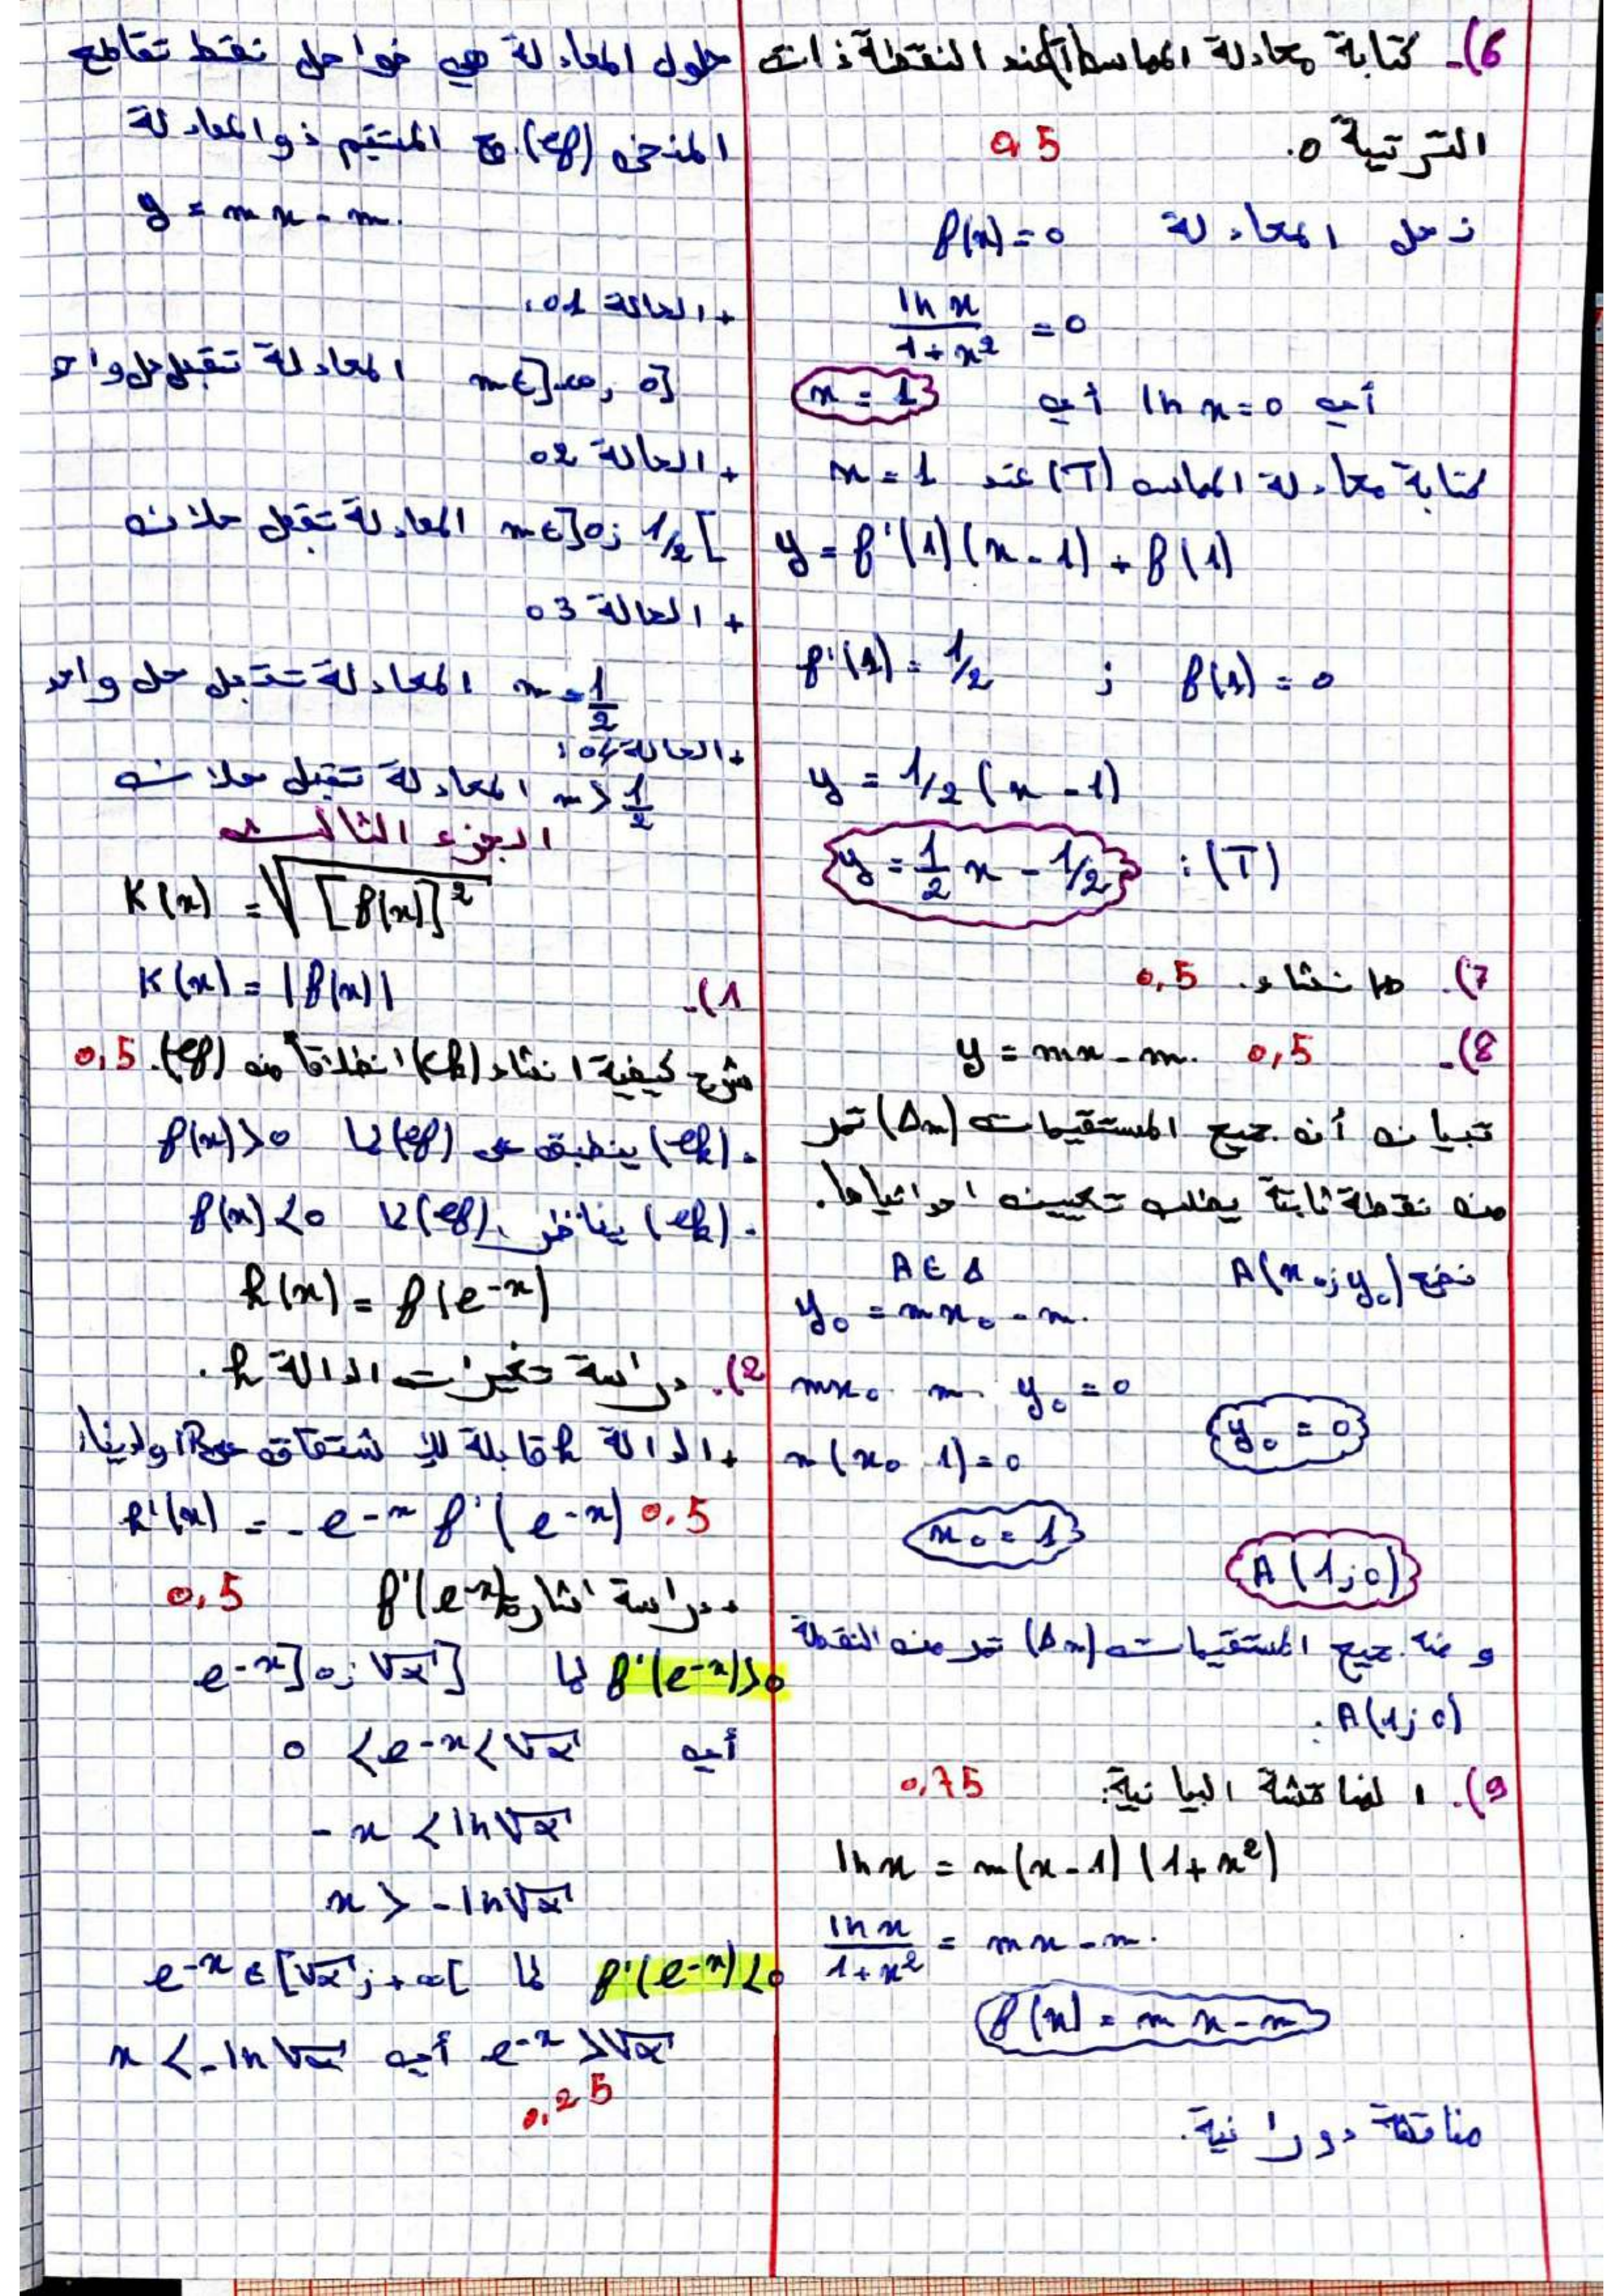 6)- كتابة معادلة المماس (T) عند النقطة ذات
الترتيبة 0. 0.5
نحل المعادلة f(x)=0
ln x / 1+x² = 0
أي ln x=0 أي x = 1
كتابة معادلة المماس (T) عند x = 1
y = f'(1)(x-1) + f(1)
f'(1) = 1/2 ; f(1) = 0
y = 1/2 (x-1)
(T) : y = 1/2 x - 1/2
7)- الانشاء. 0,5
8)- y = mx - m. 0,5
تبيان أن جميع المستقيمات (Δm) تمر
من نقطة ثابتة يطلب تعيين احداثياها.
نضع A(x₀;y₀) A ∈ Δ
y₀ = mx₀ - m.
mx₀ - m - y₀ = 0
m(x₀-1)=0 y₀ = 0
x₀ = 1
A(1;0)
ومنه جميع المستقيمات (Δm) تمر من النقطة
A(1;0).
9)- المناقشة البيانية: 0.75
ln x = m(x-1)(1+x²)
ln x / 1+x² = mx - m.
f(x) = mx-m
مناقشة دورانية.
حلول المعادلة هي فواصل نقط تقاطع
المنحنى (Cf) مع المستقيم ذو المعادلة
y = mx - m.
+ الحالة 01:
m∈]-∞; 0] المعادلة تقبل حل واحد
+ الحالة 02
m∈]0; 1/2[ المعادلة تقبل حلان
+ الحالة 03
m = 1/2 المعادلة تقبل حل واحد
+ الحالة 04:
m > 1/2 المعادلة تقبل حلان
الجزء الثالث
K(x) = √[f(x)]²
1)- K(x) = |f(x)|
شرح كيفية انشاء (Ck) انطلاقا من (Cf). 0,5
. (Ck) ينطبق على (Cf) لما f(x)>0
. (Ck) يناظر (Cf) لما f(x)<0
h(x) = f(e⁻ˣ)
2)- دراسة تغيرات الدالة h.
+ الدالة h قابلة للإشتقاق على IR ولدينا:
h'(x) = -e⁻ˣ f'(e⁻ˣ) 0.5
+ دراسة اشارة f'(e⁻ˣ) 0,5
f'(e⁻ˣ)>0 لما e⁻ˣ ]0; √α]
أي 0 < e⁻ˣ < √α
-x < ln√α
x > -ln√α
f'(e⁻ˣ)<0 لما e⁻ˣ ∈ [√α; +∞[
e⁻ˣ > √α أي x < -ln√α
0,25